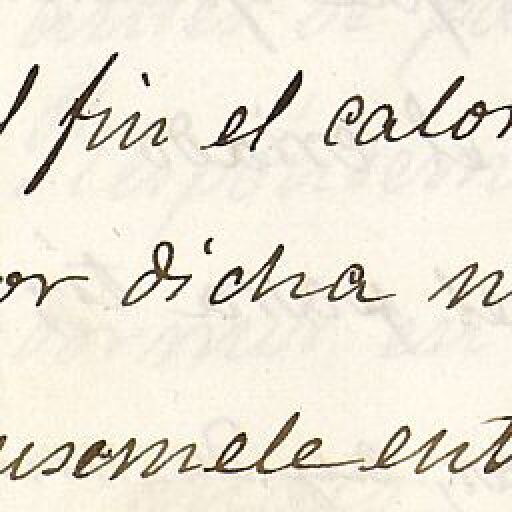 l fin el calor
or dicha n
usomele ent